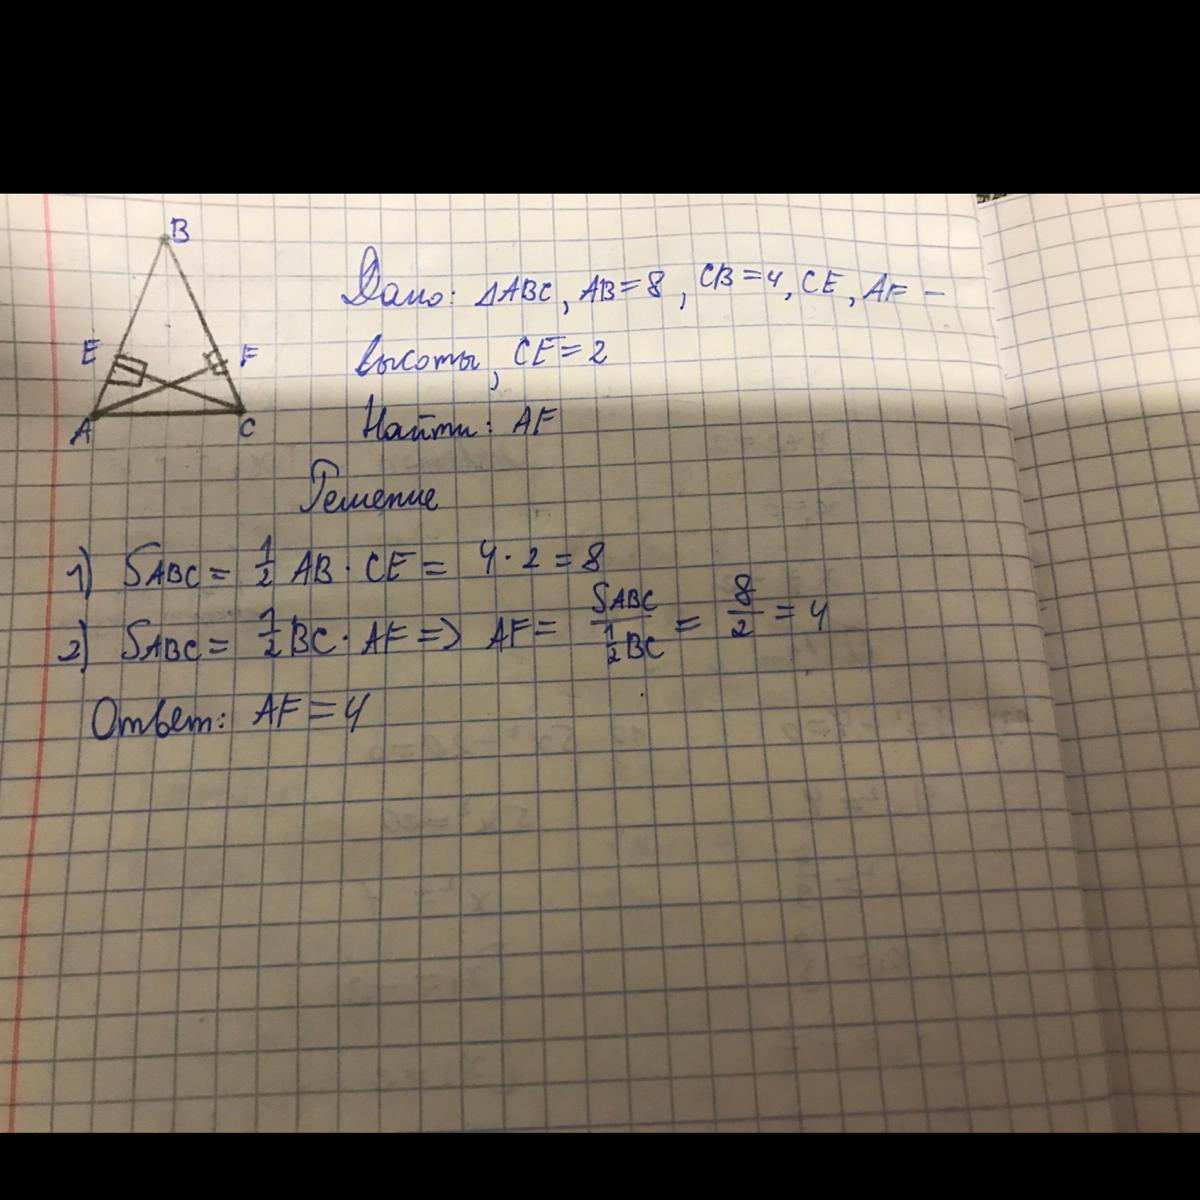 B
E F
A C
Дано: △ABC, AB=8, CB=4, CE, AF –
высоты, CE=2
Найти: AF
Решение
1) SABC = 1/2 AB · CE = 4 · 2 = 8
2) SABC = 1/2 BC · AF => AF = SABC / 1/2 BC = 8/2 = 4
Ответ: AF = 4